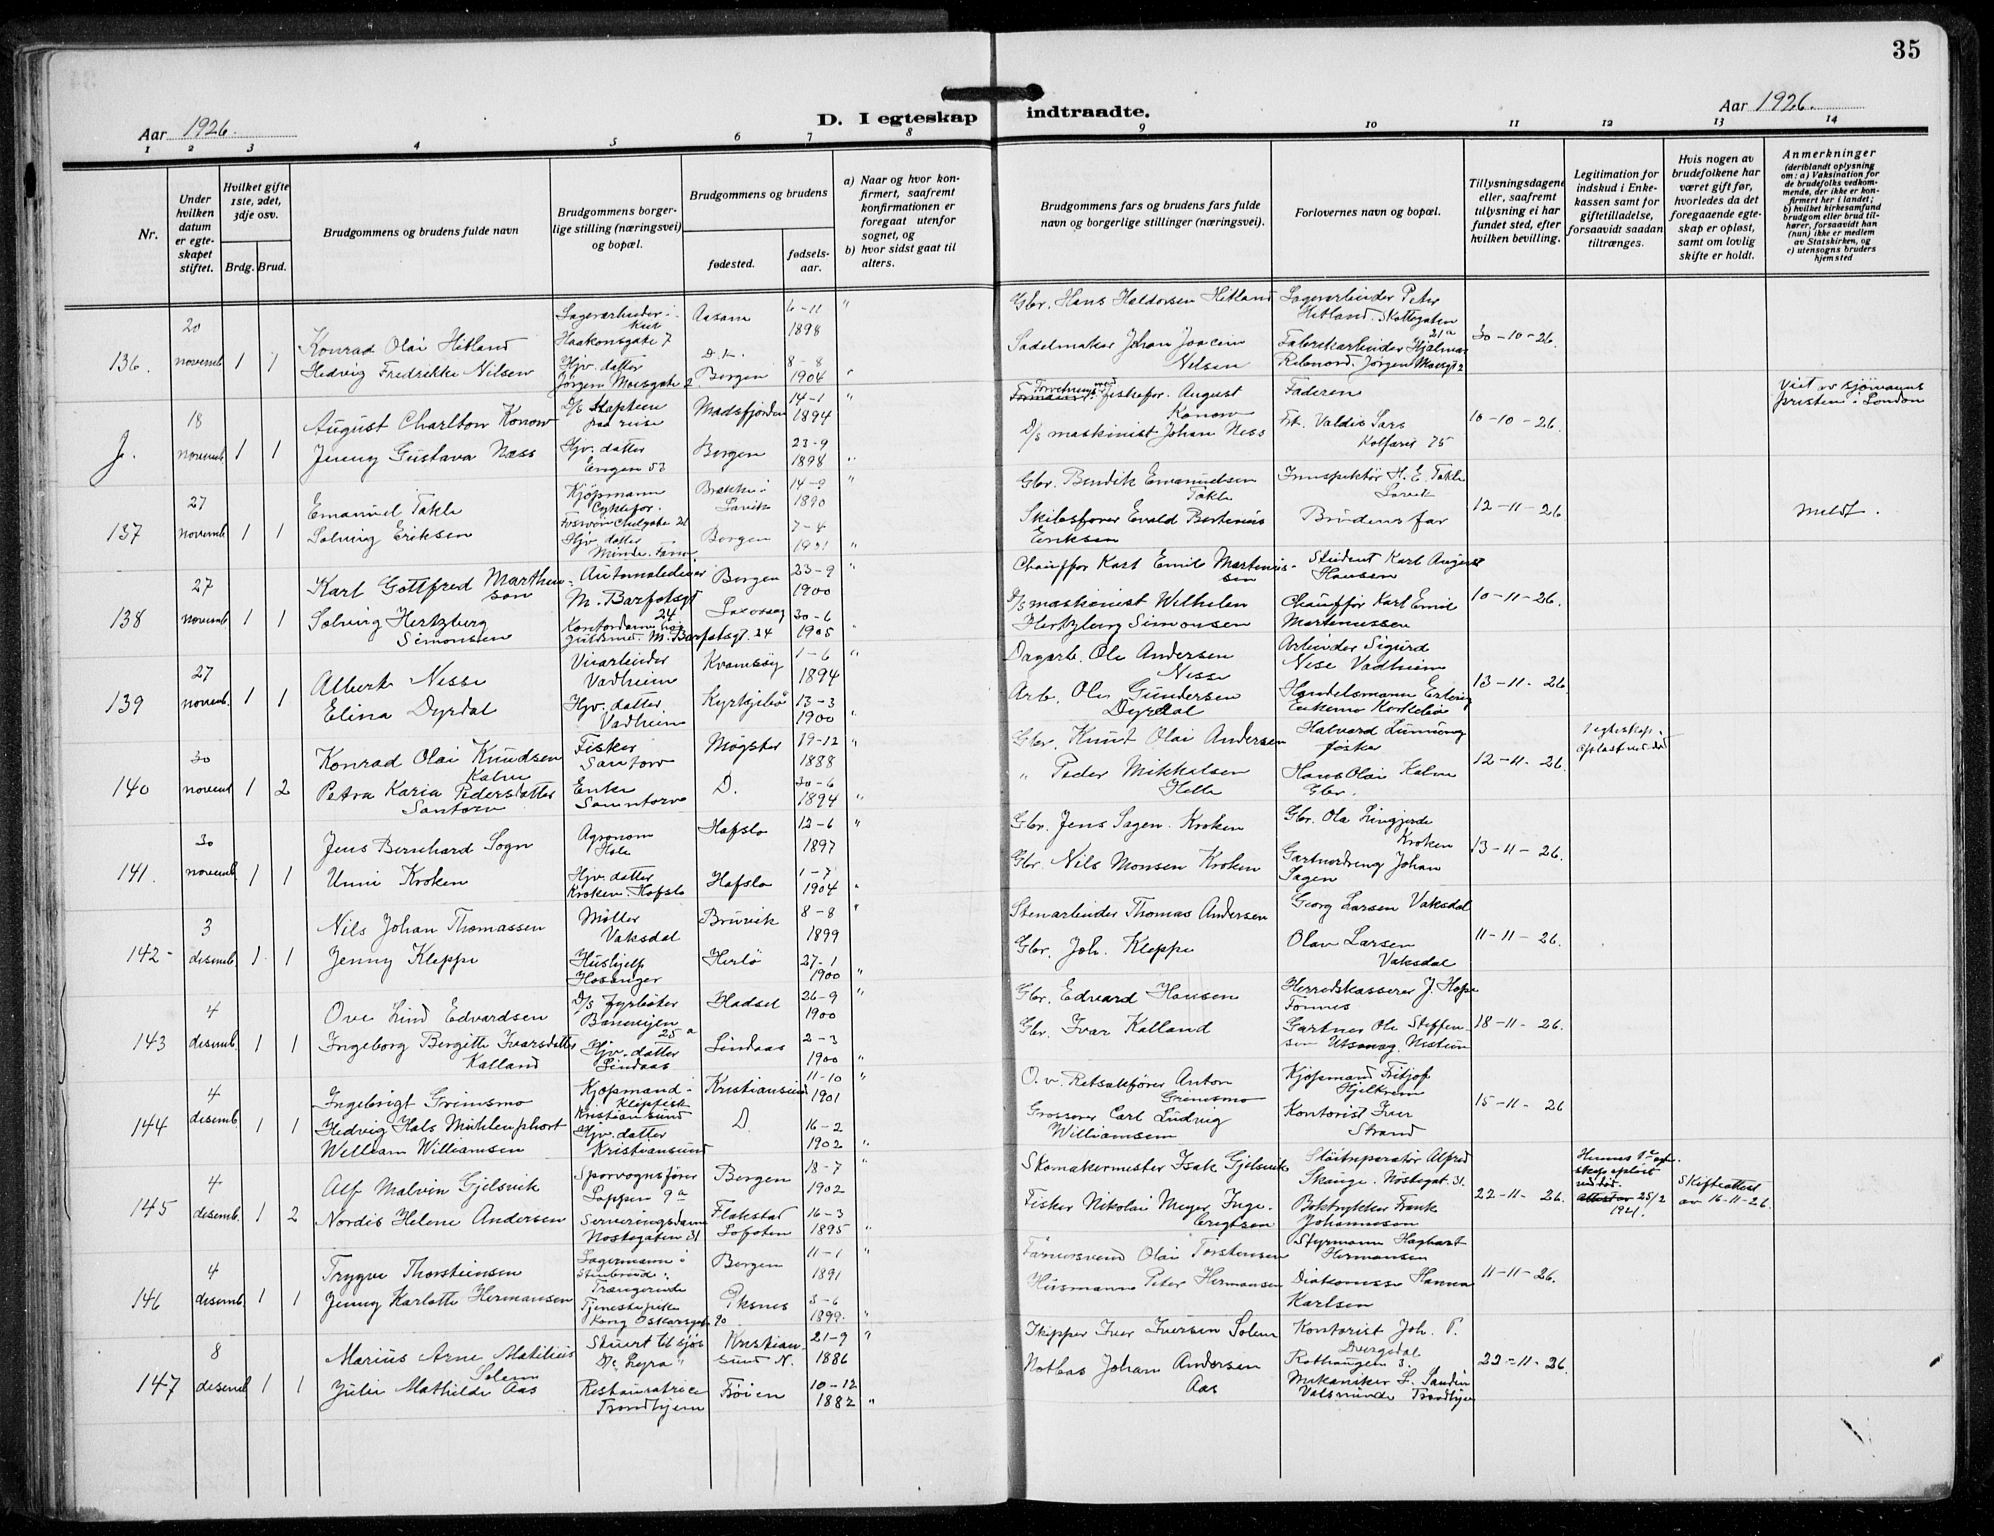 35
Aar 1926.
D. I egteskap indtraadte.
Aar 1926.
1 2 3 4 5 6 7 8 9 10 11 12 13 14
Nr.
Under hvilken datum er egteskapet stiftet.
Hvilket gifte 1ste, 2det, 3dje osv.
Brdg. Brud.
Brudgommens og brudens fulde navn
Brudgommens borgerlige stilling (næringsvei) og bopæl.
Brudgommens og brudens
fødested.
fødselsaar.
a) Naar og hvor konfirmert, saafremt konfirmationen er foregaat utenfor sognet, og
b) hvor sidst gaat til alters.
Brudgommens fars og brudens fars fulde navn og borgerlige stillinger (næringsvei).
Forlovernes navn og bopæl.
Tillysningsdagene eller, saafremt tillysning ei har fundet sted, efter hvilken bevilling.
Legitimation for indskud i Enkekassen samt for giftetilladelse, forsaavidt saadan tiltrænges.
Hvis nogen av brudefolkene har været gift før, hvorledes da det foregaaende egteskap er opløst, samt om lovlig skifte er holdt.
Anmerkninger
(deriblandt oplysning om: a) Vaksination for de brudefolks vedkommende, der ikke er konfirmert her i landet; b) hvilket kirkesamfund brudgom eller brud tilhører, forsaavidt han (hun) ikke er medlem av Statskirken, og c) utensogns bruders hjemsted
136. 20 novemb. 1 1
Konrad Olai Hitland
Hedvig Fredrikke Nilsen
Haakonsgate 7
Hjv. datter
Jørgen Moesgate 2
Aasane
Bergen
6-11 1898
8-8 1904
Gbr. Hans Haldorsen Hitland
Sadelmaker Johan Joacim Nilsen
Lagerarbeider Peter Hitland. Skottegaten 21a
Fabrikarbeider Hjalmar
Jørgen Moesgt 2
30-10-26.
18 novemb. 1 1
August Charlton Konow
Jenny Gustava Næss
D/s Kaptein
paa reise
Hjv. datter
Engen 53
Madsfjorden
Bergen
14-1 1894
23-9 1898
fiskefor. August Konow
D/s maskinist Johan Ness
Faderen
Frk. Valdis Sars
Kalfaret 75
10-10-26.
Viet av sjømannspresten i London
137 27 novemb. 1 1
Emanuel Takle
Solveig Eriksen
Kjøpmann
Hjv. datter
Minde. Fana
Brekke i Lavik
Bergen
14-9 1890
7-4 1901
Gbr. Bendik Emanuelsen Takle
Skibsfører Evald Bertinius Eriksen
H. E. Takle
Lavik
Brudens far
12-11-26
meldt.
138 27 novemb. 1 1
Karl Gottfred Marthinson
Solveig Hertzberg Simonsen
M. Barfotsgt 24
Kontordame hos
M. Barfotsgt. 24
Bergen
Laxevaag
23-9 1900
30-6 1905
Chauffør Karl Emil Martinussen
D/s maskinist Wilhelm Hertzberg Simonsen
Student Karl August Hansen
Chauffør Karl Emil Martinussen
10-11-26.
139 27 novemb. 1 1
Albert Nesse
Elina Dyrdal
Veiarbeider
Vadheim
Hjv. datter
Vadheim
Kvamsøy
Kyrkjebø
1-6 1894
13-3 1900
Dagarb. Ole Andersen Nesse
Arb. Ole Gundersen Dyrdal
Arbeider Sigurd Nese Vadheim
Handelsmann Erling
13-11-26.
140 30 novemb. 1 2
Konrad Olai Knudsen Kalve
Petra Karia Pedersdatter Santorv
Fisker
Santorv
Enke
Sanntorv
Møgster
D.
19-12 1888
30-6 1894
Gbr. Knut Olai Andersen
" Peder Mikkalsen Helle
Halvard
fisker
Hans Olai Kalve
Gbr.
12-11-26.
1 egteskap opløst ved død
141. 30 novemb. 1 1
Jens Bernhard Sogn
Unni Kroken
Agronom
Hole
Hjv. datter
Kroken. Hafslo
Hafslo
Hafslo
12-6 1897
1-7 1904
Gbr. Jens Sagen. Kroken
Gbr Nils Monsen Kroken
Gbr. Ola Lingjerde Kroken
Gartnerdreng Johan Sagen
13-11-26.
142- 3 desemb. 1 1
Nils Johan Thomassen
Jenny Kleppe
Møller
Vaksdal
Hushjelp
Hosanger
Bruvik
Herlø
8-8 1899
27-1 1900
Stenarbeider Thomas Andersen
Gbr. Joh. Kleppe
Georg Larsen Vaksdal
Olav Larsen
Vaksdal
11-11-26.
143 4 desemb. 1 1
Ove Lind Edvardsen
Ingeborg Bergitte Ivarsdatter Kalland
D/s fyrbøter
Baneveien 25 a
Hjv. datter
Lindaas
Hadsel
Lindaas
26-9 1900
2-3 1900
Gbr. Edvard Hansen
Gbr. Ivar Kalland
Herredskasserer J. Hope
Fonnes
Gartner Ole Steffensen
18-11-26.
144 4 desemb. 1 1
Ingebrigt Grimsmo
Hedvig Hals Mühlenphort
William Williamsen
Kjøpmand i Klipfisk
Kristiansund
Hjv. datter
Kristiansund
Kristiansund
D.
11-10 1901
16-2 1902
O.r. Retsakfører Anton Grimsmo
Grosserer Carl Ludvig Williamsen
Kjøpmand Fritjof Hjelkrem
Kontorist Iver Strand
15-11-26
145 4 desemb. 1 2
Alf Malvin Gjelsvik
Nordis Helene Andersen
Sporvognsfører
Lappen 9a
Serveringsdame
Nøstegaten 31
Bergen
Flakstad
Lofoten
18-7 1902
16-3 1895
Skomakermester Isak Gjelsvik
Fisker Nikolai Meyer Ingebrigtsen
Alfred Skauge. Nøstegat. 31.
Boktrykker Frank Johannesen
22-11-26.
Hennes 1ste egteskap opløst ved død.
25/2 1921.
Skifteattest av 16-11-26.
146 4 desemb. 1 1
Trygve Thorsteinsen
Jenny Karlotte Hermansen
Lagermann i
Tjenestepike
Kong Oskarsgate 20
Bergen
Øksnes
11-1 1891
3-6 1899.
Farversvend Olai Torstensen
Husmann Peter Hermansen
Styrmann Hagbart Hermansen
Diakonisse Hanna Karlsen
11-11-26.
147 8 desemb. 1 1
Marius Arne Matilius Solem
Julie Mathilde Aas
Stuert til sjøs
D/s "Lyra"
Restauratrice
Trondhjem
Kristiansund N.
Frøien
21-9 1886
10-12 1882
Skipper Iver Iversen Solem
Notbas Johan Andersen Aas
Kontorist Joh. P. Dvergedal
Rothaugen 3.
Mekaniker L. Sandin
Trondhjem
22-11-26.